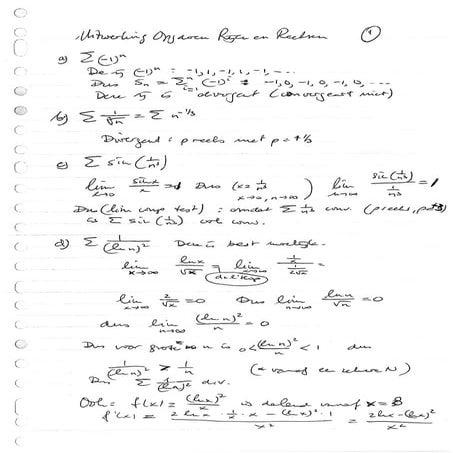 Uitwerking Opgaven Rijen en Reeksen ①
a) Σ (-1)ⁿ
De rij (-1)ⁿ = -1, 1, -1, 1, -1, ...
Dus Sₙ = Σ (-1)ⁱ = -1, 0, -1, 0, -1, 0, ...
Deze rij is divergent (convergeert niet)
b) Σ 1/∛n = Σ n^(-1/3)
Divergent: p reeks met p = 1/3
c) Σ sin(1/n³)
lim x→0 sin x/x = 1 Dus (x = 1/n³ x→0, n→∞) lim n→∞ sin(1/n³)/(1/n³) = 1
Dus (lim comp test): omdat Σ 1/n³ conv. (p reeks, p=3)
is Σ sin(1/n³) ook conv.
d) Σ 1/(ln n)² Deze is best moeilijk.
lim x→∞ ln x/√x = lim x→∞ (1/x)/(1/(2√x))
de l'Hop
lim x→∞ 2/√x = 0 Dus lim n→∞ ln n/√n = 0
dus lim n→∞ (ln n)²/n = 0
Dus voor grote n is 0 < (ln n)²/n < 1 dus
1/(ln n)² > 1/n (vanaf een zekere N)
Dus Σ 1/(ln n)² div.
Ook: f(x) = (ln x)²/x is dalend vanaf x = 8
f'(x) = (2 ln x · 1/x · x - (ln x)² · 1)/x² = (2 ln x - (ln x)²)/x²